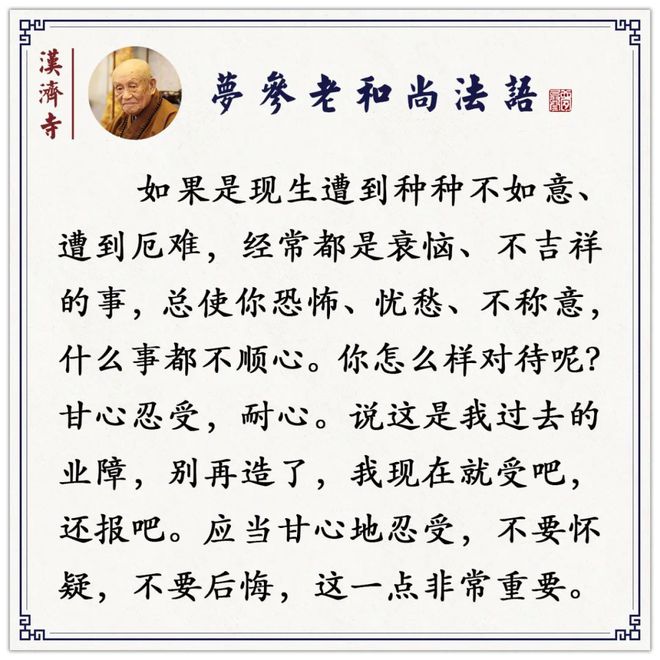 漢濟寺
夢參老和尚法語
如果是现生遭到种种不如意、
遭到厄难，经常都是衰恼、不吉祥
的事，总使你恐怖、忧愁、不称意，
什么事都不顺心。你怎么样对待呢？
甘心忍受，耐心。说这是我过去的
业障，别再造了，我现在就受吧，
还报吧。应当甘心地忍受，不要怀
疑，不要后悔，这一点非常重要。